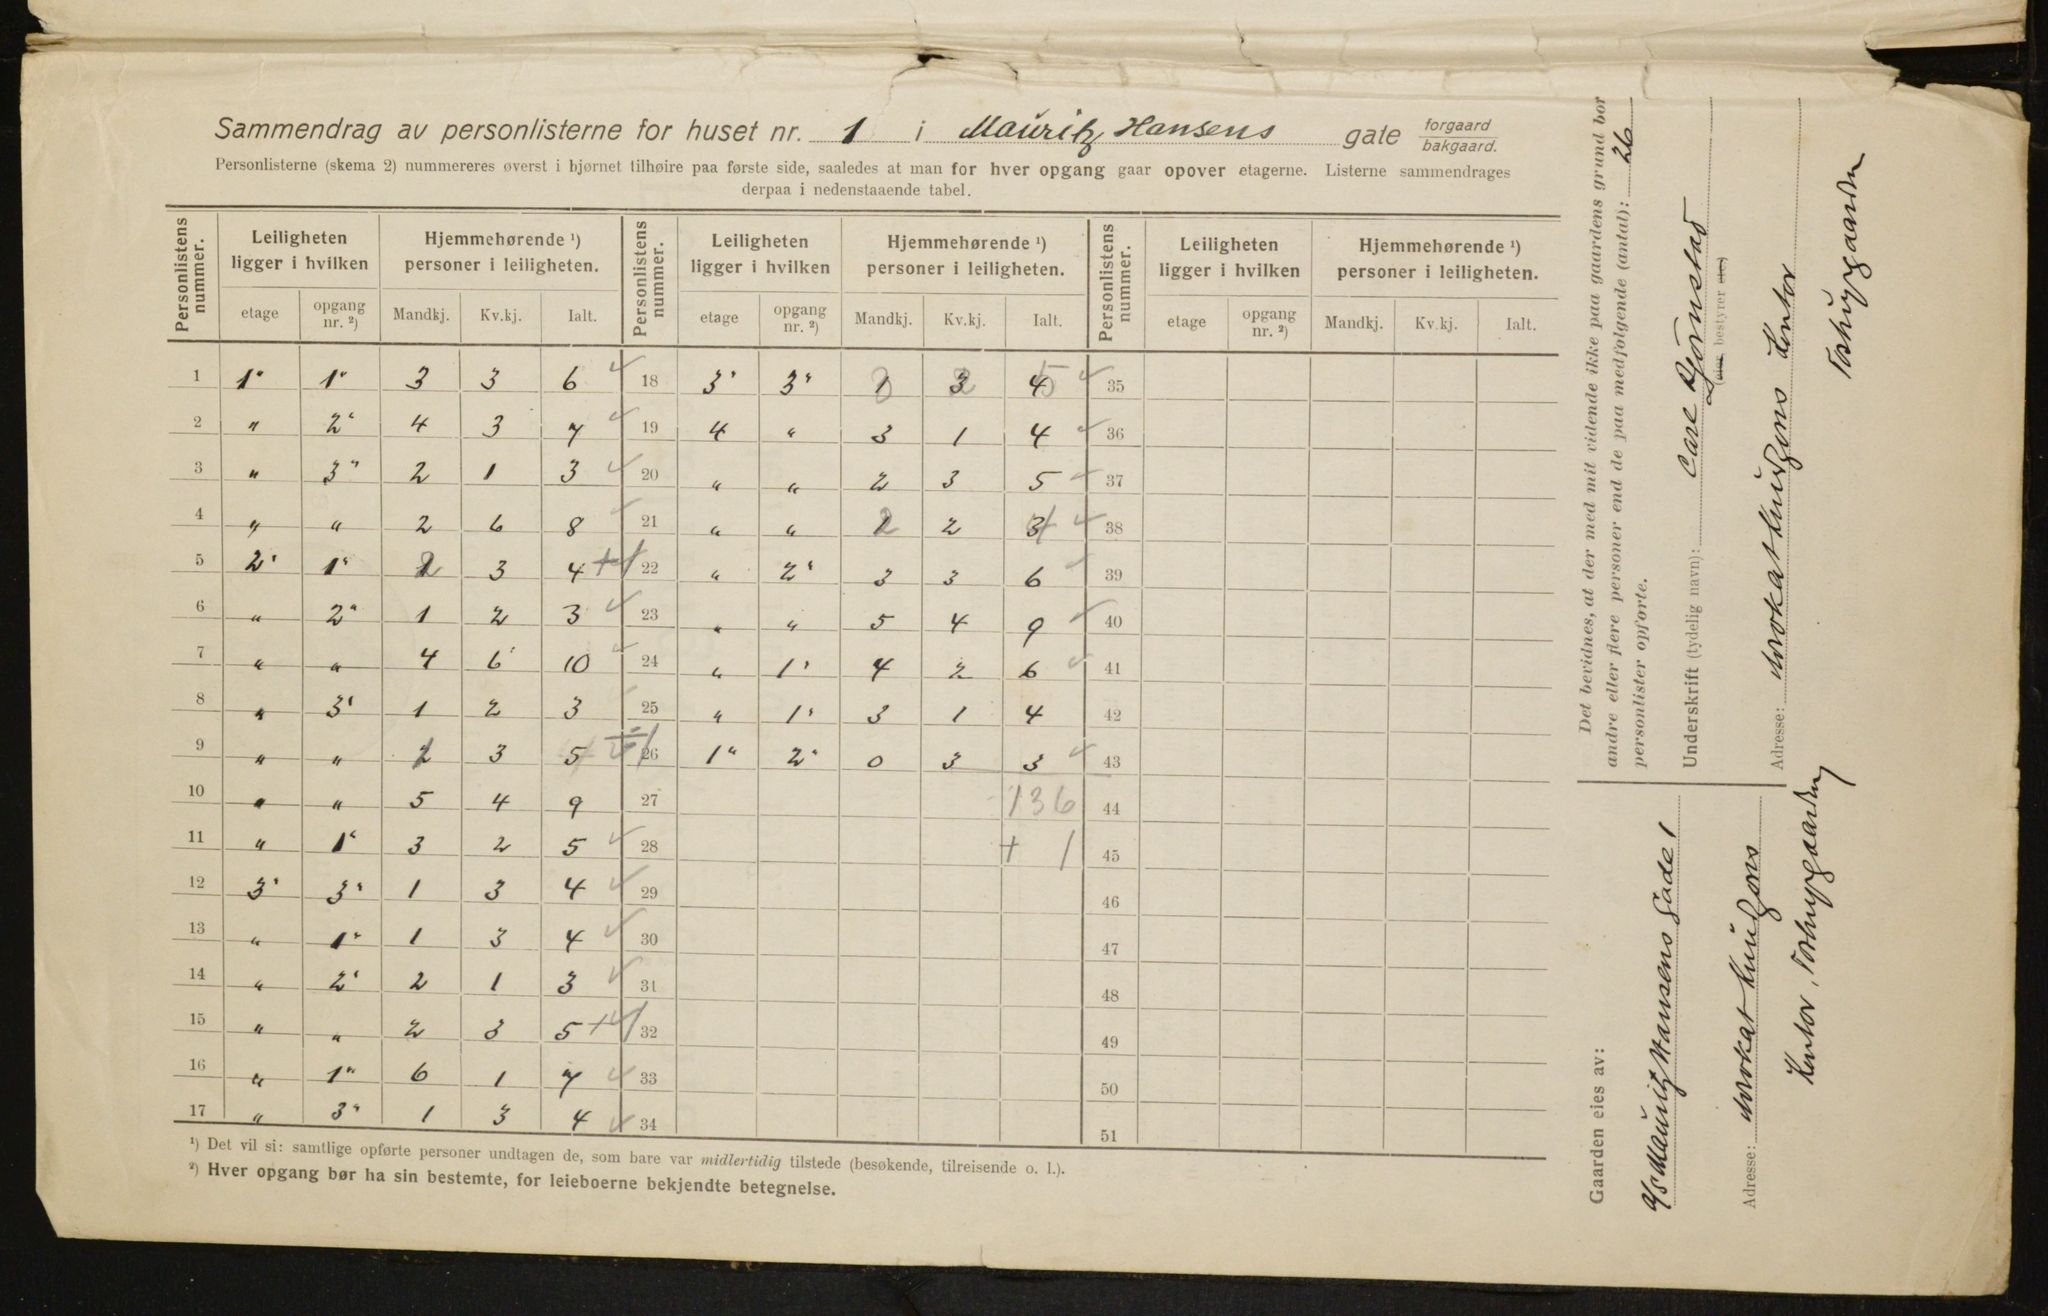 Sammendrag av personlisterne for huset nr. 1 i Mauritz Hansens gate forgaard bakgaard.
Personlisterne (skema 2) nummereres øverst i hjørnet tilhøire paa første side, saaledes at man for hver opgang gaar opover etagerne. Listerne sammendrages
derpaa i nedenstaaende tabel.
Personlistens nummer. Leiligheten ligger i hvilken Hjemmehørende ¹) personer i leiligheten. Personlistens nummer. Leiligheten ligger i hvilken Hjemmehørende ¹) personer i leiligheten. Personlistens nummer. Leiligheten ligger i hvilken Hjemmehørende ¹) personer i leiligheten.
etage opgang nr. ²) Mandkj. Kv.kj. Ialt. etage opgang nr. ²) Mandkj. Kv.kj. Ialt. etage opgang nr. ²) Mandkj. Kv.kj. Ialt.
1 1" 1" 3 3 6 18 3" 3" 3 35
2 " 2" 4 3 7 19 4 " 3 1 4 36
3 " 3" 2 1 3 20 " " 2 3 5 37
4 " " 2 6 8 21 " " 2 38
5 2" 1" 3 4 + 1 22 " 2" 3 3 6 39
6 " 2" 1 2 3 23 " " 5 4 9 40
7 " " 4 6 10 24 " 1" 4 2 6 41
8 " 3" 1 2 3 25 " 1" 3 1 4 42
9 " " 2 3 5 26 1" 2" 0 3 3 43
10 " " 5 4 9 27 136 44
11 " 1" 3 2 5 28 + 1 45
12 3" 3" 1 3 4 29 46
13 " 1" 1 3 4 30 47
14 " 2" 2 1 3 31 48
15 " " 2 3 5 + 1 32 49
16 " 1" 6 1 7 33 50
17 " 3" 1 3 4 34 51
¹) Det vil si: samtlige opførte personer undtagen de, som bare var midlertidig tilstede (besøkende, tilreisende o. l.).
²) Hver opgang bør ha sin bestemte, for leieboerne bekjendte betegnelse.
Det bevidnes, at der med mit vidende ikke paa gaardens grund bor
andre eller flere personer end de paa medfølgende (antal): 26
personlister opførte.
Underskrift (tydelig navn): Carl Bjørnstad
(eier bestyrer etc.)
Adresse: Advokat Knudzons Kontor
Tostrupgaarden
Gaarden eies av:
A/S Mauritz Hansens Gade 1
Adresse: Advokat Knudzons
Kontor, Tostrupgaarden